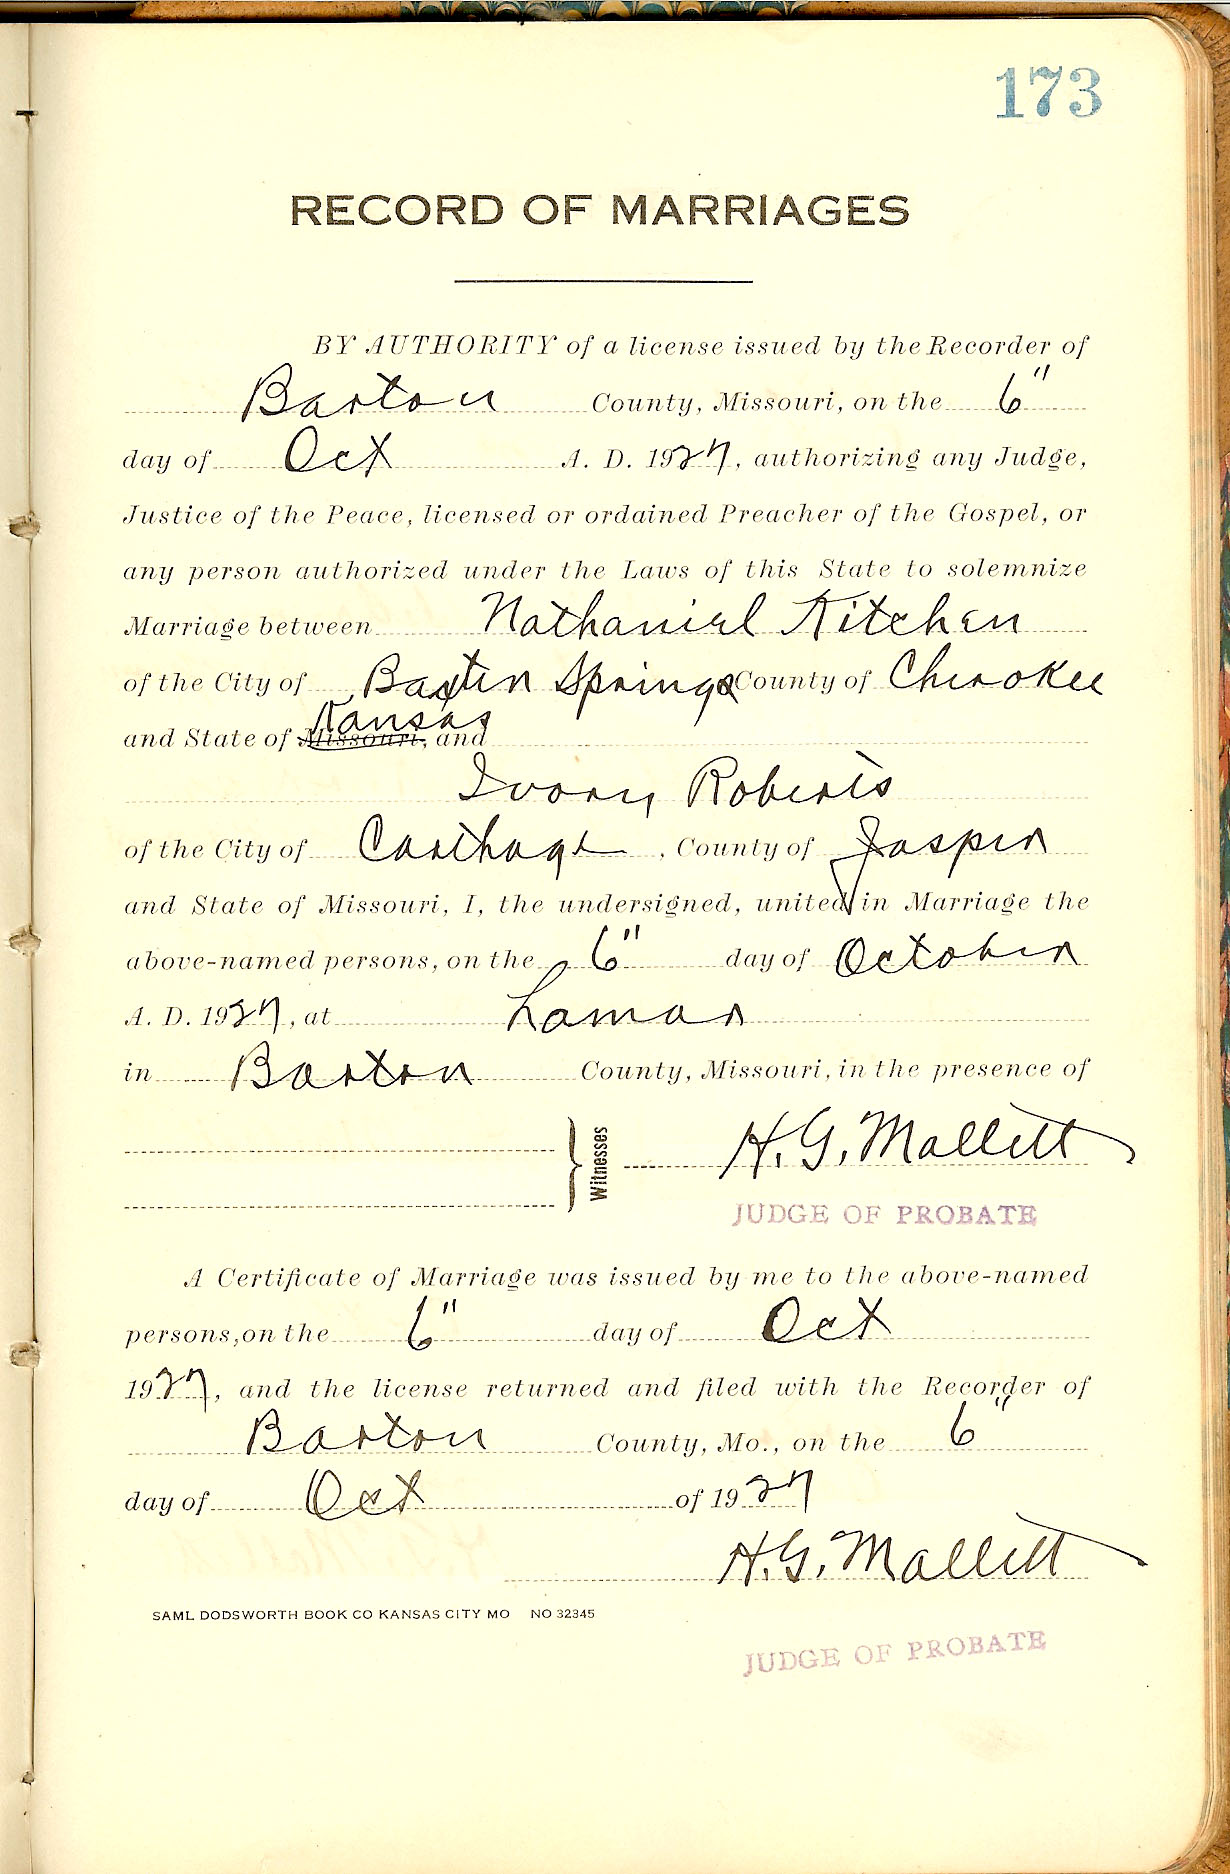 173
RECORD OF MARRIAGES
BY AUTHORITY of a license issued by the Recorder of
Barton County, Missouri, on the 6"
day of Oct A. D. 1927, authorizing any Judge,
Justice of the Peace, licensed or ordained Preacher of the Gospel, or
any person authorized under the Laws of this State to solemnize
Marriage between Nathaniel Kitchen
of the City of Baxter Springs County of Cherokee
Kansas
and State of Missouri, and
Ivory Roberts
of the City of Carthage, County of Jasper
and State of Missouri, I, the undersigned, united in Marriage the
above-named persons, on the 6" day of October
A. D. 1927, at Lamar
in Barton County, Missouri, in the presence of
Witnesses H. G. Mallett
JUDGE OF PROBATE
A Certificate of Marriage was issued by me to the above-named
persons, on the 6" day of Oct
1927, and the license returned and filed with the Recorder of
Barton County, Mo., on the 6"
day of Oct of 1927
H. G. Mallett
SAML DODSWORTH BOOK CO KANSAS CITY MO NO 32345
JUDGE OF PROBATE